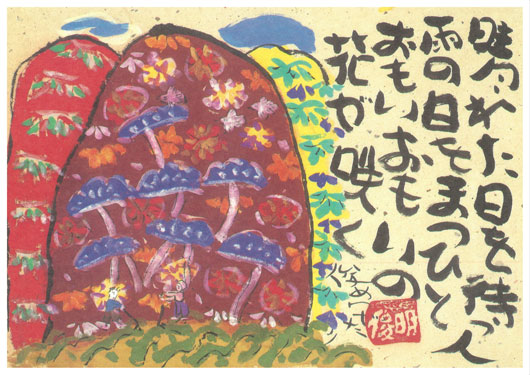 晴れた日を待つ人
雨の日をまつひと
おもいおもいの
花が咲く
俊明